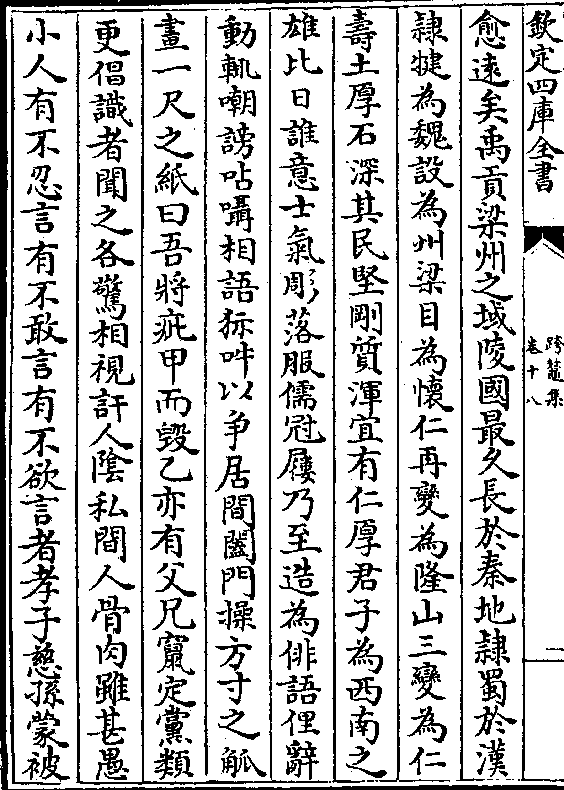 欽定四庫全書
跨鼇集
卷十八
一
愈遠矣禹貢梁州之域陵國最久長於秦地隷蜀於漢
隷犍為魏設為州梁目為懷仁再變為隆山三變為仁
壽土厚石深其民堅剛質渾宜有仁厚君子為西南之
雄比日誰意士氣彫落服儒冠屨乃至造為俳語俚辭
動輒嘲謗呫囁相語狋吽以爭居間闔門操方寸之觚
畫一尺之紙曰吾將疵甲而毀乙亦有父兄竄定黨類
更倡識者聞之各驚相視訐人陰私間人骨肉雖甚愚
小人有不忍言有不敢言有不欲言者孝子慈孫蒙被